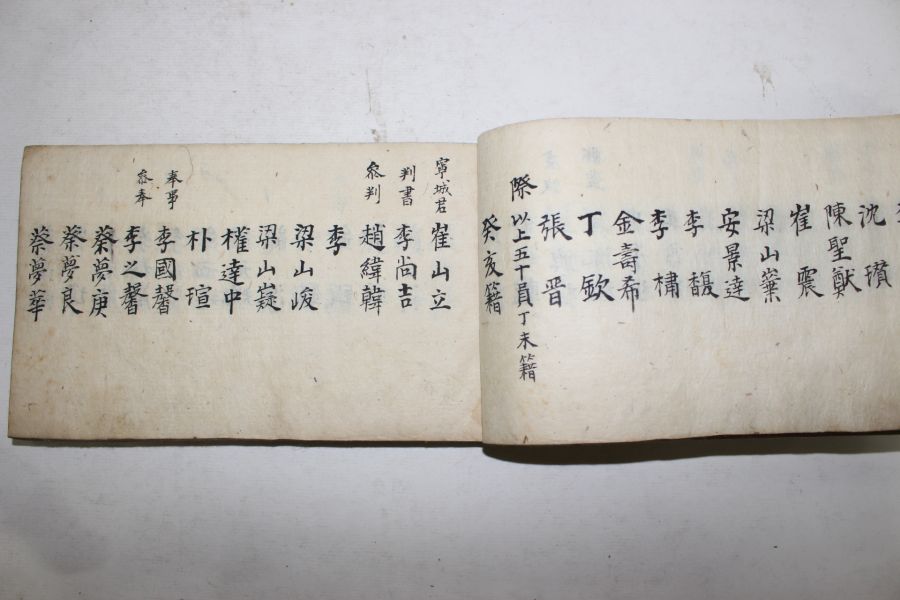 沈瓚
陳聖猷
崔震
梁山藁
安景達
李馥
李橚
金壽希
丁欽
張晋
際以上五十員丁未籍
癸亥籍
寧城君 崔山立
判書 李尚吉
叅判 趙緯韓
李
梁山峻
梁山嶷
權達中
朴瑄
奉事 李國馨
叅奉 李之馨
蔡夢庚
蔡夢良
蔡夢華